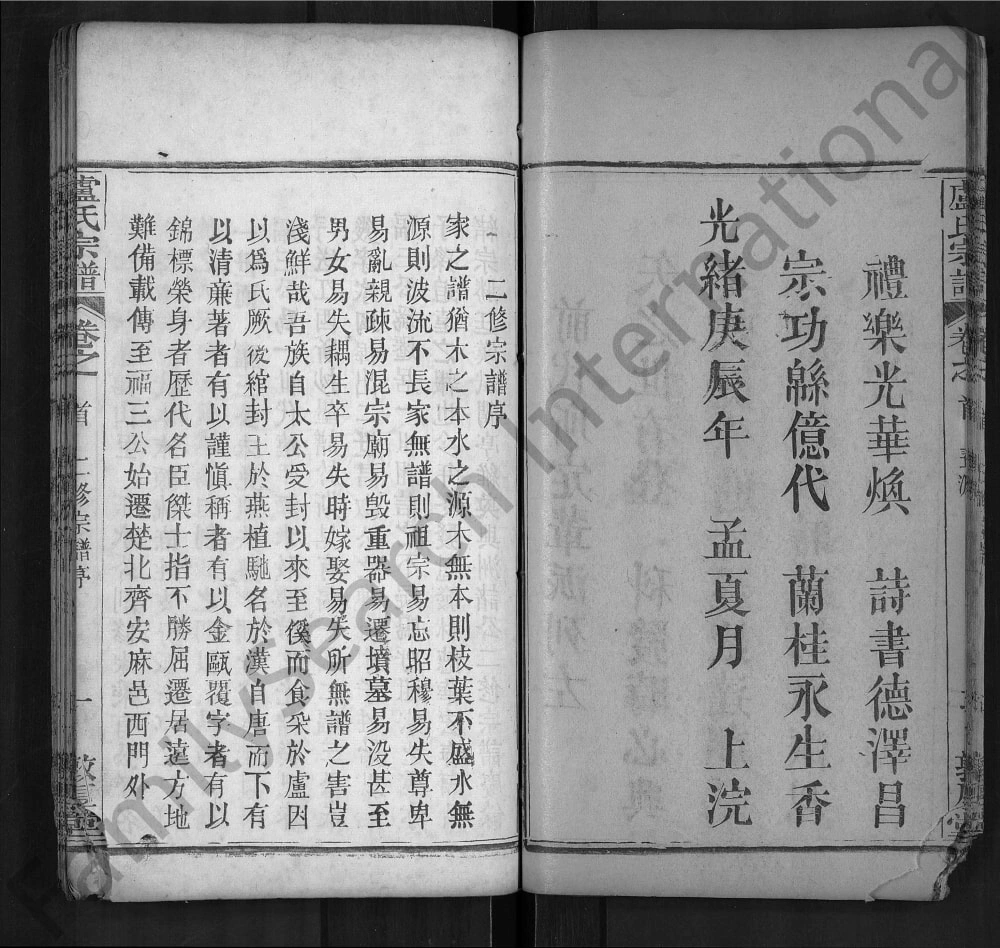 盧氏宗譜
卷之
首
禮樂光華煥 詩書德澤昌
宗功緜億代 蘭桂永生香
光緒庚辰年 孟夏月 上浣
二修宗譜序
家之譜猶木之本水之源木無本則枝葉不盛水無
源則波流不長家無譜則祖宗易忘昭穆易失尊卑
易亂親疎易混宗廟易毀重器易遷墳墓易没甚至
男女易失耦生卒易失時嫁娶易失所無譜之害豈
淺鮮哉吾族自太公受封以來至傒而食朶於盧因
以爲氏厥後綰封王於燕植馳名於漢自唐而下有
以清亷著者有以謹愼稱者有以金甌覆字者有以
錦標榮身者歷代名臣傑士指不勝屈遷居遠方地
難備載傳至福三公始遷楚北齊安麻邑西門外
盧氏宗譜
卷之
首 二修宗譜序
一
堂
FamilySearch International